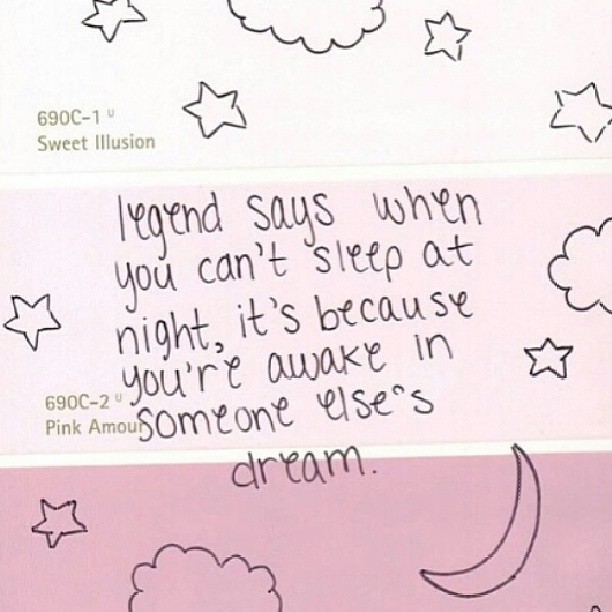 690C-1 U
Sweet Illusion
legend says when
you can't sleep at
night, it's because
you're awake in
690C-2 U
someone else's
Pink Amour
dream.